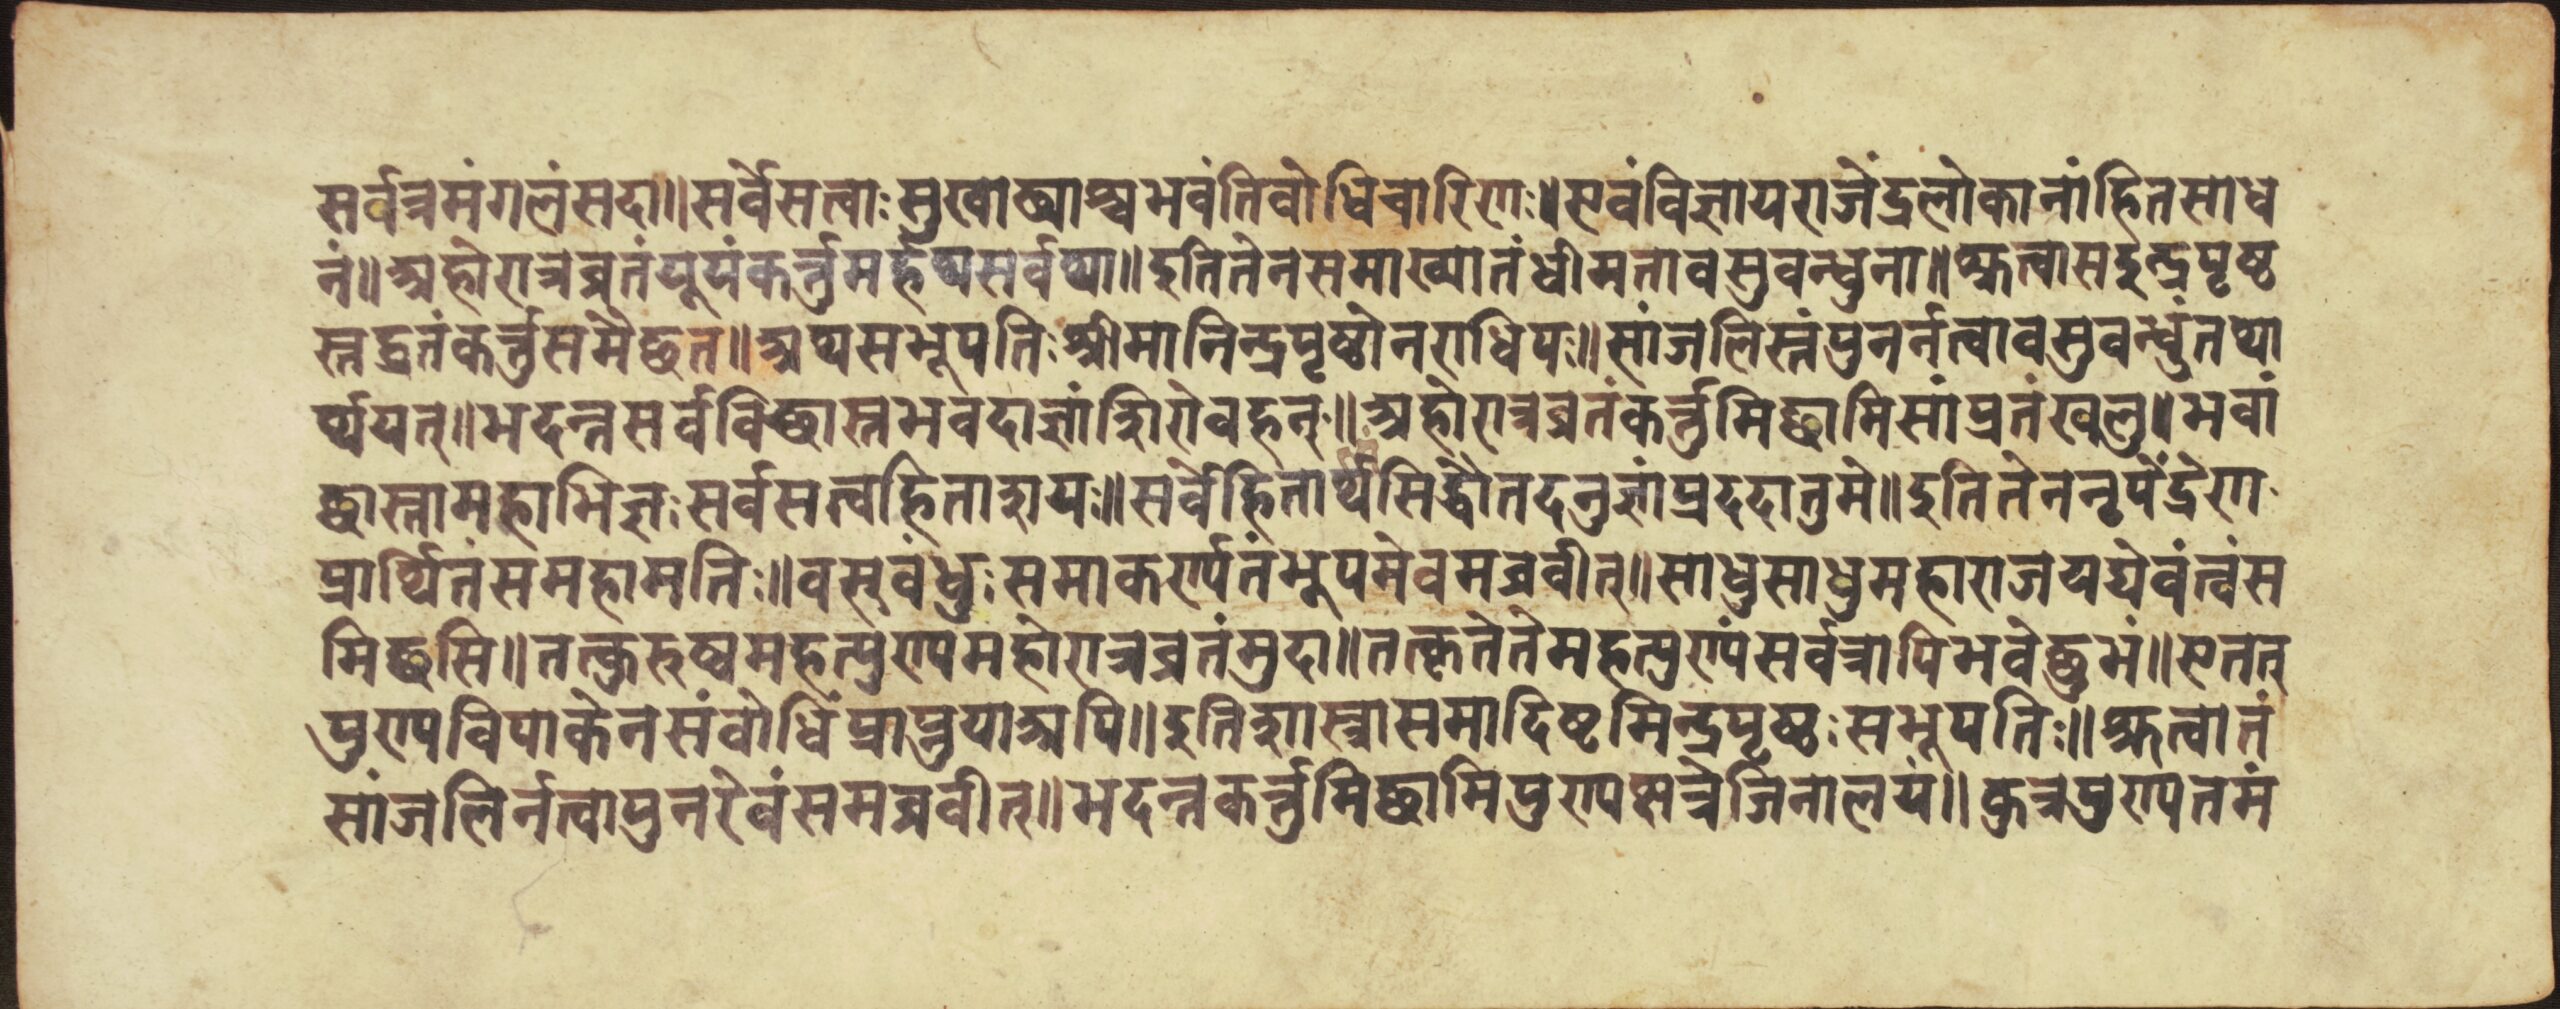 सर्वत्रमंगलंसदा॥सर्वेसत्वाःसुखाढ्याश्चभवंतिवोधिचारिणः॥एवंविज्ञायराजेंद्रलोकानांहितसाध
नं॥अहोरात्रव्रतंयूयंकर्त्तुमर्हथसर्वथा॥इतितेनसमाख्यातंधीमतावसुवन्धुना॥श्रुत्वासइन्द्रपृष्ठ
स्तद्व्रतंकर्त्तुसमैछत॥अथसभूपतिःश्रीमानिन्द्रपृष्ठोनराधिपः॥सांजलिस्तंपुनर्नत्वावसुवन्धुंतथा
र्थयत्॥भदन्तसर्वविछास्तभवदाज्ञांशिरोवहन्॥अहोरात्रव्रतंकर्त्तुमिछामिसांप्रतंखलु॥भवां
छास्तामहाभिज्ञःसर्वसत्वहिताशयः॥सर्वेहितार्थसिद्धौतदनुज्ञांप्रददातुमे॥इतितेननृपेंद्रेण
प्रार्थितंसमहामतिः॥वसुवंधुःसमाकर्ण्यतंभूपमेवमव्रवीत्॥साधुसाधुमहाराजयद्येवंत्वंस
मिछसि॥तत्कुरुष्वमहत्पुण्यमहोरात्रव्रतंमुदा॥तत्कृतेतेमहत्पुण्यंसर्वत्रापिभवेछुभं॥एतत्
पुण्यविपाकेनसंवोधिंप्राप्नुयाअपि॥इतिशास्त्रासमादिष्टमिन्द्रपृष्ठःसभूपतिः॥श्रुत्वातं
सांजलिर्नत्वापुनरेवंसमव्रवीत्॥भदन्तकर्त्तुमिछामिपुण्यक्षेत्रेजिनालयं॥कुत्रपुण्यतमं